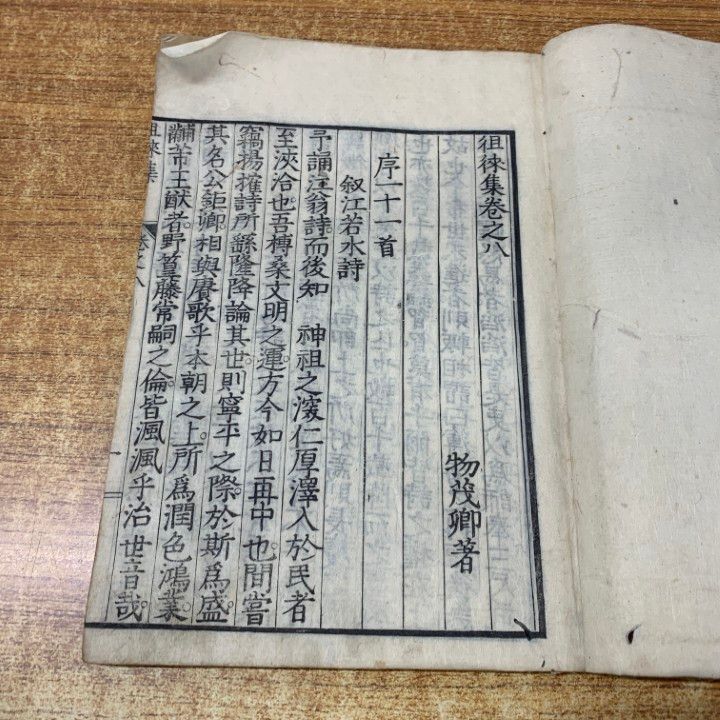 徂徠集卷之八
物茂卿著
序一十一首
叙江若水詩
予誦注翁詩而後知　神祖之深仁厚澤入於民者
至浹洽也。吾榑桑文明之運方今如日再中也。間嘗
窃揚搉詩所繇隆降論其世則寧平之際。於斯爲盛。
其名公鉅卿。相與賡歌乎本朝之上。所爲潤色鴻業。
黼芾王猷者。野篁藤常嗣之倫皆渢渢乎治世音哉。
徂徠集　卷之八　一